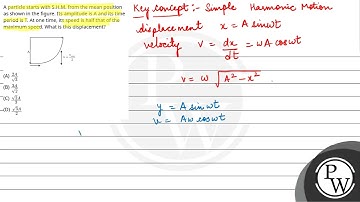 A particle starts with S.H.M. from the mean position
as shown in the figure. Its amplitude is A and its time
period is T. At one time, its speed is half that of the
maximum speed. What is this displacement?
(A) 2A
(B) 3A
(C)
(D)
Key concept :- Simple Harmonic Motion
displacement x = A sinωt
velocity v = dx/dt = ωA cosωt
v = ω √A² - x² .
y = A sinωt
v = Aω cosωt
P
W